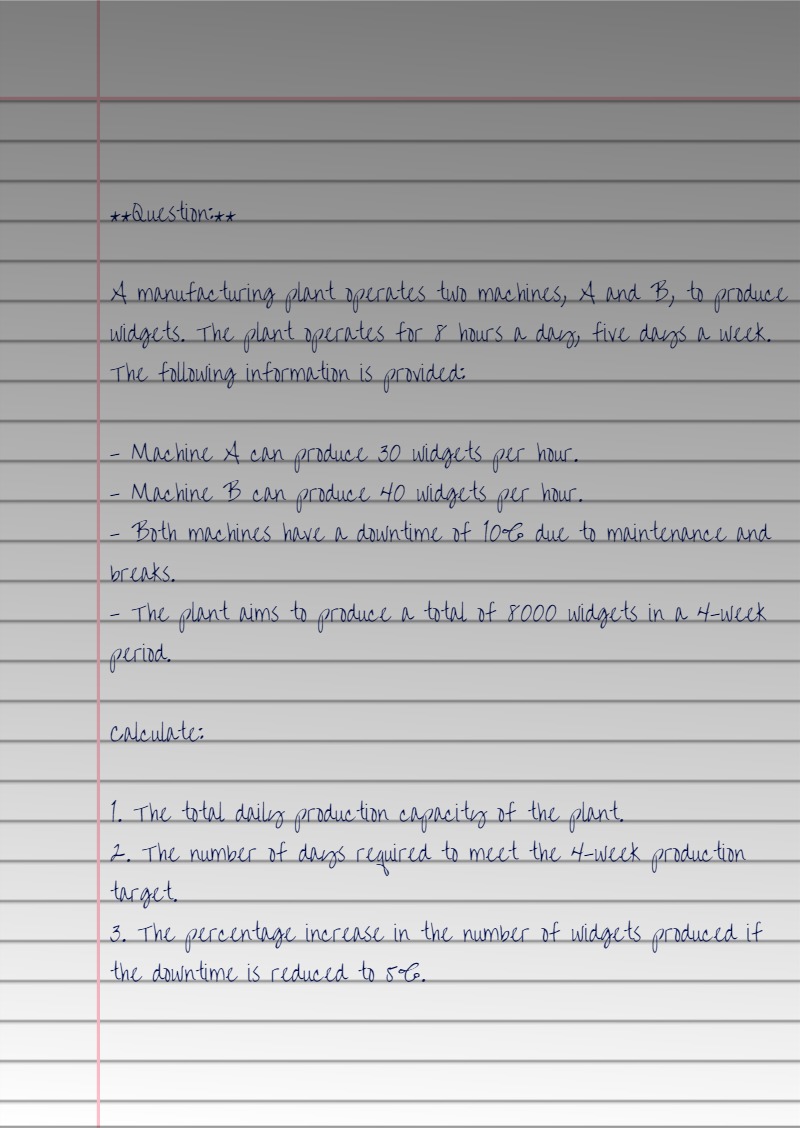 **Question:**
A manufacturing plant operates two machines, A and B, to produce
widgets. The plant operates for 8 hours a day, five days a week.
The following information is provided:
- Machine A can produce 30 widgets per hour.
- Machine B can produce 40 widgets per hour.
- Both machines have a downtime of 10% due to maintenance and
breaks.
- The plant aims to produce a total of 8000 widgets in a 4-week
period.
Calculate:
1. The total daily production capacity of the plant.
2. The number of days required to meet the 4-week production
target.
3. The percentage increase in the number of widgets produced if
the downtime is reduced to 5%.